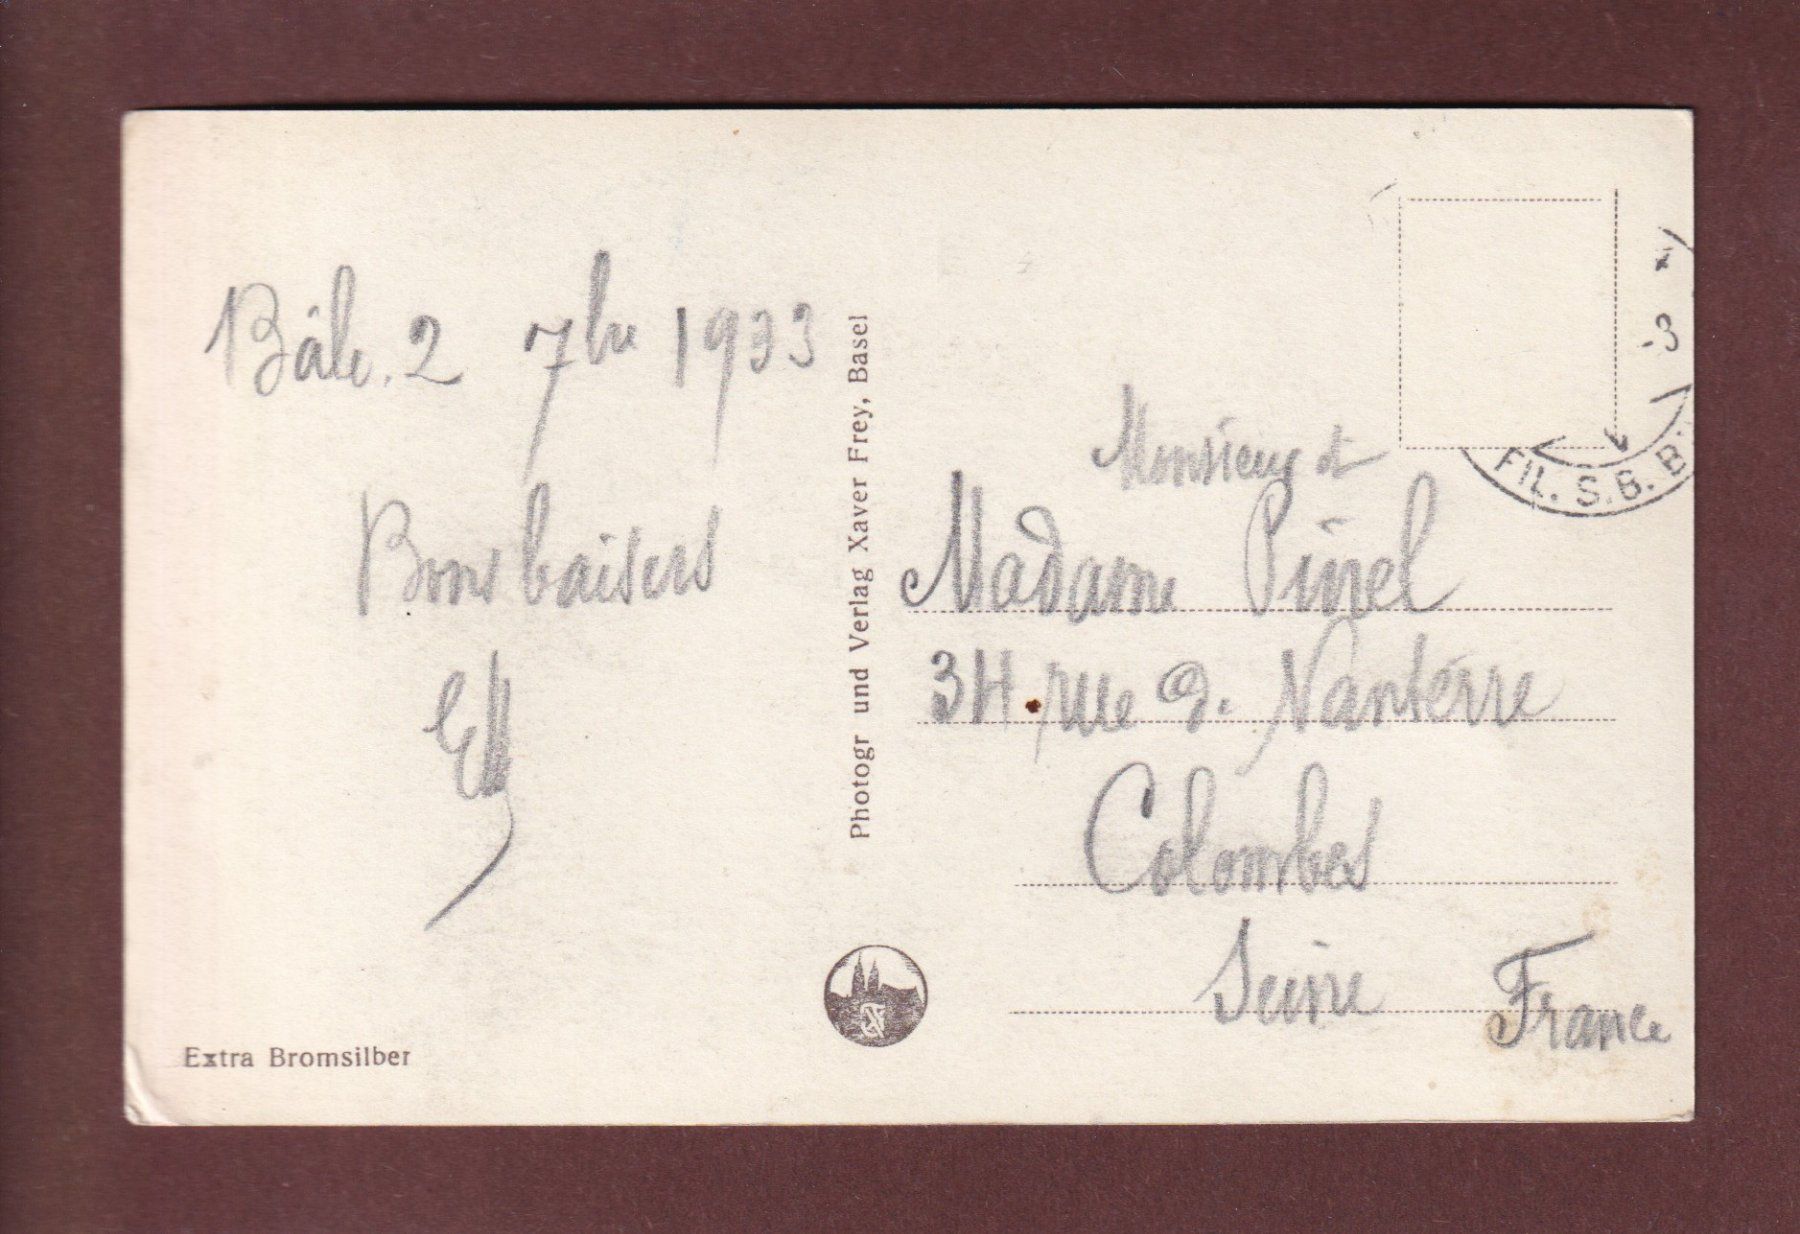 Bâle. 2 7bre 1933
Bons baisers
Monsieur et
Madame Pinel
34. rue d. Nanterre
Colombes
Seine
France
Photogr und Verlag Xaver Frey, Basel
Extra Bromsilber
FIL. S.B.B.